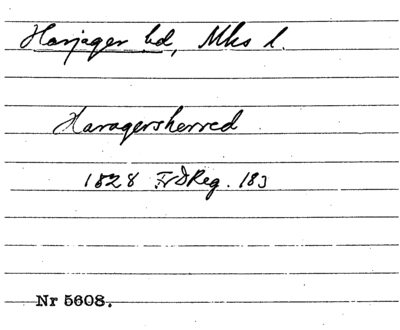 Harjager hd, Mks l.
Haragersherred
1828 FrDReg. 183
Nr 5608.